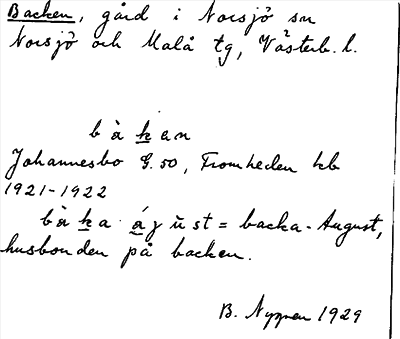 Backen, gård i Norsjö sn
Norsjö och Malå tg, Västerb. l.
bàkan
Johannesbo G. 50, Fromheden kb
1921-1922
bàka ágŭst = backa-August,
husbonden på backen.
B. Nyman 1929